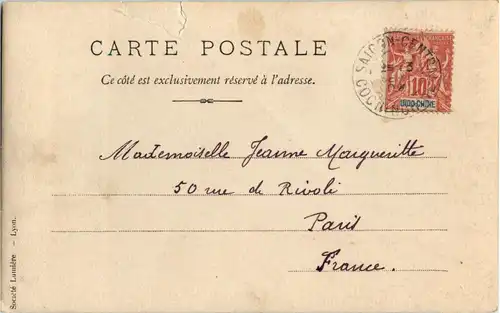 CARTE POSTALE
Ce côté est exclusivement réservé à l'adresse.
SAIGON-CENTRAL
10
INDO-CHINE
Mademoiselle Jeanne Margueritte
50 rue de Rivoli
Paris
France.
Société Lumière – Lyon.